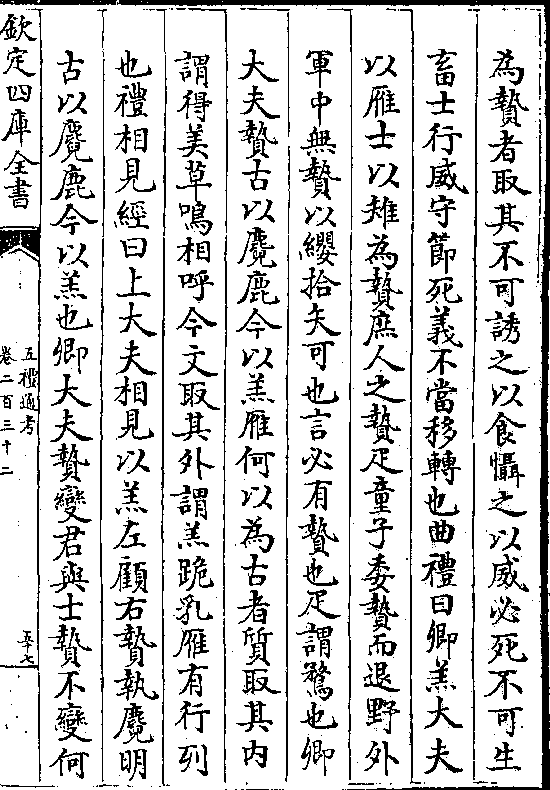 為贄者取其不可誘之以食懾之以威必死不可生
畜士行威守節死義不當移轉也曲禮曰卿羔大夫
以雁士以雉為贄庶人之贄疋童子委贄而退野外
軍中無贄以纓拾矢可也言必有贄也疋謂鶩也卿
大夫贄古以麑鹿今以羔雁何以為古者質取其內
謂得美草鳴相呼今文取其外謂羔跪乳雁有行列
也禮相見經曰上大夫相見以羔左顧右贄執麑明
古以麑鹿今以羔也卿大夫贄變君與士贄不變何
欽定四庫全書
五禮通考
卷二百三十二
五十七